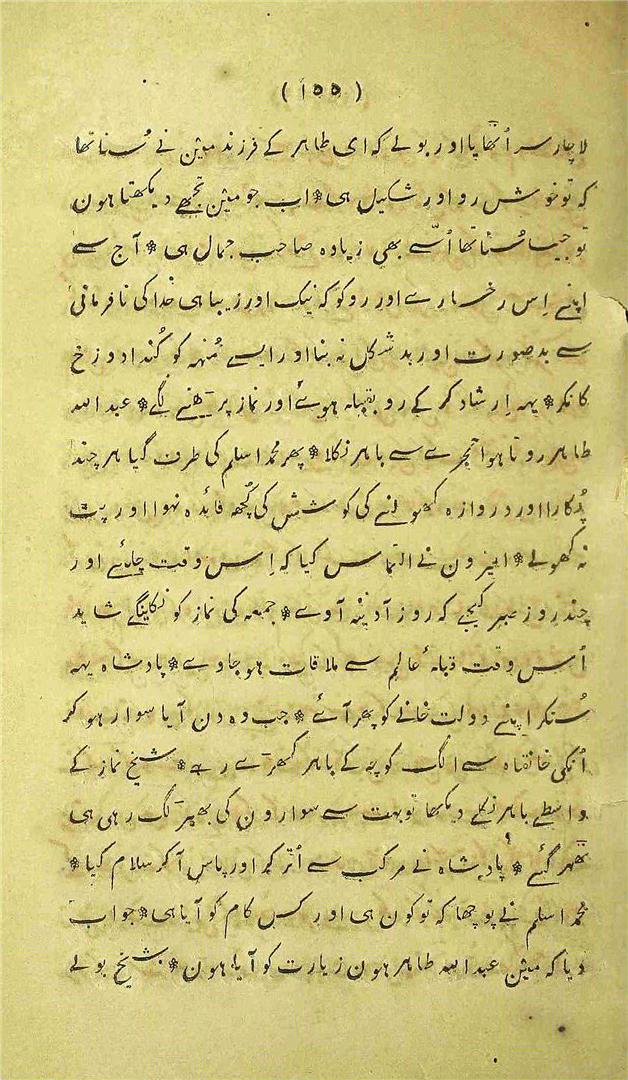 ( ۱۵۵ )
لاچار سر اُٹھایا اور بولے کہ ای طاہر کے فرزند مین نے سُنا تھا
کہ تو خوش رو اور شکیل ہی * اب جو مین تجھے دیکھتا ہون
تو جیسا سُنا تھا اُسّے بھی زیادہ صاحب جمال ہی * آج سے
اپنے اِس رخسارے اور رو کو کہ نیک اور زیبا ہی خدا کی نافرمانی
سے بدصورت اور بد شکل نہ بنا اور ایسے مُنہہ کو کُندا دوزخ
کا نکر * یہہ اِرشاد کر کے رو بقبلہ ہوئے اور نماز پڑھنے لگے * عبد اللہ
طاہر روتا ہوا حجرے سے باہر نکلا * پھر محمد اسلم کی طرف گیا ہر چند
پُکارا اور دروازہ کھولنے کی کوشش کی کُچھ فائدہ نہوا اور پٹ
نہ کھولے * امیرون نے التماس کیا کہ اِس وقت چلئے اور
چند روز صبر کیجے کہ روز آدینہ آوے * جمعہ کی نماز کو نکلینگے شاید
اُس وقت قبلۂ عالم سے ملاقات ہو جاوے * پادشاہ یہہ
سُنکر اپنے دولت خانے کو پھر آئے * جب وہ دن آیا سوار ہو کر
اُنکی خانقاہ سے الگ کوچہ کے باہر کھڑے رہے * شیخ نماز کے
واسطے باہر نکلے دیکھا تو بہت سے سوارون کی بھیڑ لگ رہی ہی
ٹھہر گئے * پادشاہ نے مرکب سے اُتر کر اور پاس آ کر سلام کیا *
محمد اسلم نے پوچھا کہ تو کون ہی اور کس کام کو آیا ہی * جواب
دیا کہ مین عبد اللہ طاہر ہون زیارت کو آیا ہون * شیخ بولے